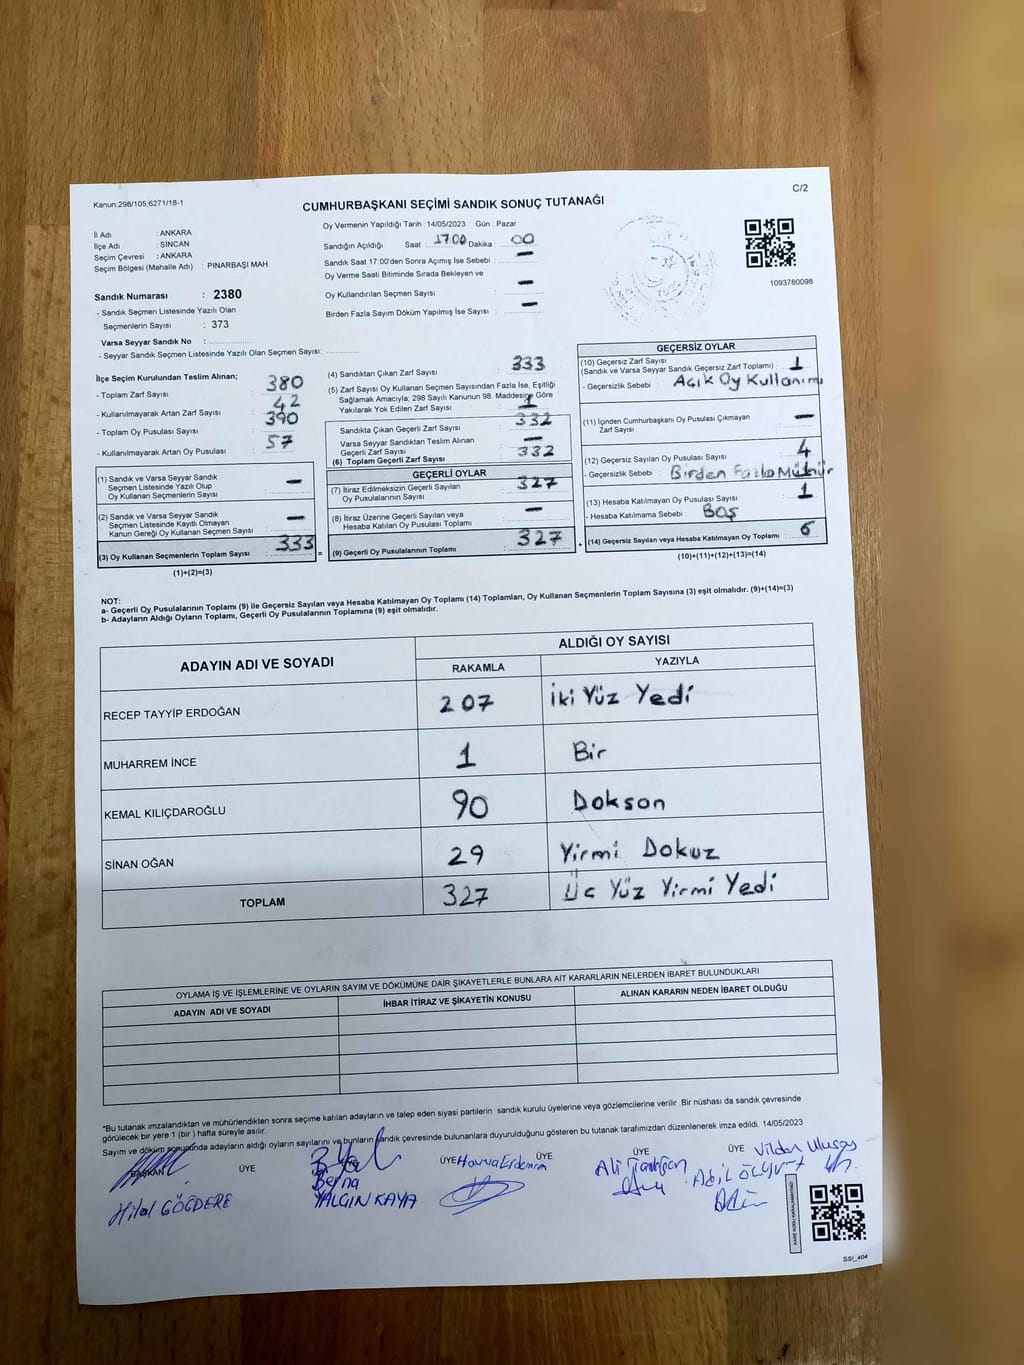 Kanun;298/105;6271/18-1
C/2
CUMHURBAŞKANI SEÇİMİ SANDIK SONUÇ TUTANAĞI
İl Adı : ANKARA
İlçe Adı : SİNCAN
Seçim Çevresi : ANKARA
Seçim Bölgesi (Mahalle Adı) : PINARBAŞI MAH.
Sandık Numarası : 2380
- Sandık Seçmen Listesinde Yazılı Olan
Seçmenlerin Sayısı : 373
Varsa Seyyar Sandık No :
- Seyyar Sandık Seçmen Listesinde Yazılı Olan Seçmen Sayısı:
Oy Vermenin Yapıldığı Tarih : 14/05/2023 Gün : Pazar
Sandığın Açıldığı Saat : 17.00 Dakika : 00
Sandık Saat 17:00'den Sonra Açımış İse Sebebi : —
Oy Verme Saati Bitiminde Sırada Bekleyen ve
Oy Kullandırılan Seçmen Sayısı : —
Birden Fazla Sayım Döküm Yapılmış İse Sayısı : —
1093780098
İlçe Seçim Kurulundan Teslim Alınan;
- Toplam Zarf Sayısı : 380
- Kullanılmayarak Artan Zarf Sayısı : 42
- Toplam Oy Pusulası Sayısı : 390
- Kullanılmayarak Artan Oy Pusulası : 57
(1) Sandık ve Varsa Seyyar Sandık
Seçmen Listesinde Yazılı Olup
Oy Kullanan Seçmenlerin Sayısı : —
(2) Sandık ve Varsa Seyyar Sandık
Seçmen Listesinde Kayıtlı Olmayan
Kanun Gereği Oy Kullanan Seçmen Sayısı : —
(3) Oy Kullanan Seçmenlerin Toplam Sayısı : 333 =
(1)+(2)=(3)
(4) Sandıktan Çıkan Zarf Sayısı : 333
(5) Zarf Sayısı Oy Kullanan Seçmen Sayısından Fazla İse, Eşitliği
Sağlamak Amacıyla; 298 Sayılı Kanunun 98. Maddesine Göre
Yakılarak Yok Edilen Zarf Sayısı : 1
Sandıkta Çıkan Geçerli Zarf Sayısı : 332
Varsa Seyyar Sandıktan Teslim Alınan
Geçerli Zarf Sayısı : —
(6) Toplam Geçerli Zarf Sayısı : 332
GEÇERLİ OYLAR
(7) İtiraz Edilmeksizin Geçerli Sayılan
Oy Pusulalarının Sayısı : 327
(8) İtiraz Üzerine Geçerli Sayılan veya
Hesaba Katılan Oy Pusulası Toplamı : —
(9) Geçerli Oy Pusulalarının Toplamı : 327 +
GEÇERSİZ OYLAR
(10) Geçersiz Zarf Sayısı
(Sandık ve Varsa Seyyar Sandık Geçersiz Zarf Toplamı) : 1
- Geçersizlik Sebebi : Açık Oy Kullanımı
(11) İçinden Cumhurbaşkanı Oy Pusulası Çıkmayan
Zarf Sayısı : —
(12) Geçersiz Sayılan Oy Pusulası Sayısı : 4
- Geçersizlik Sebebi : Birden Fazla Mühür
(13) Hesaba Katılmayan Oy Pusulası Sayısı : 1
- Hesaba Katılmama Sebebi : Boş
(14) Geçersiz Sayılan veya Hesaba Katılmayan Oy Toplamı : 6
(10)+(11)+(12)+(13)=(14)
NOT:
a- Geçerli Oy Pusulalarının Toplamı (9) ile Geçersiz Sayılan veya Hesaba Katılmayan Oy Toplamı (14) Toplamları, Oy Kullanan Seçmenlerin Toplam Sayısına (3) eşit olmalıdır. (9)+(14)=(3)
b- Adayların Aldığı Oyların Toplamı, Geçerli Oy Pusulalarının Toplamına (9) eşit olmalıdır.
ADAYIN ADI VE SOYADI
ALDIĞI OY SAYISI
RAKAMLA YAZIYLA
RECEP TAYYİP ERDOĞAN 207 İki Yüz Yedi
MUHARREM İNCE 1 Bir
KEMAL KILIÇDAROĞLU 90 Doksan
SİNAN OĞAN 29 Yirmi Dokuz
TOPLAM 327 Üc Yüz Yirmi Yedi
OYLAMA İŞ VE İŞLEMLERİNE VE OYLARIN SAYIM VE DÖKÜMÜNE DAİR ŞİKAYETLERLE BUNLARA AİT KARARLARIN NELERDEN İBARET BULUNDUKLARI
ADAYIN ADI VE SOYADI İHBAR İTİRAZ VE ŞİKAYETİN KONUSU ALINAN KARARIN NEDEN İBARET OLDUĞU
*Bu tutanak imzalandıktan ve mühürlendikten sonra seçime katılan adayların ve talep eden siyasi partilerin sandık kurulu üyelerine veya gözlemcilerine verilir .Bir nüshası da sandık çevresinde
görülecek bir yere 1 (bir ) hafta süreyle asılır.
Sayım ve döküm sonucunda adayların aldığı oyların sayılarını ve bunların sandık çevresinde bulunanlara duyurulduğunu gösteren bu tutanak tarafımızdan düzenlenerek imza edildi. 14/05/2023
BAŞKAN ÜYE ÜYE ÜYE ÜYE ÜYE
Hilal GÖĞDERE
Beyna
YALGIN KAYA
Havva Erdemm
Ali
Vildan Ulusoy
KARE KODU KARALAMAYINIZ
SSI_404